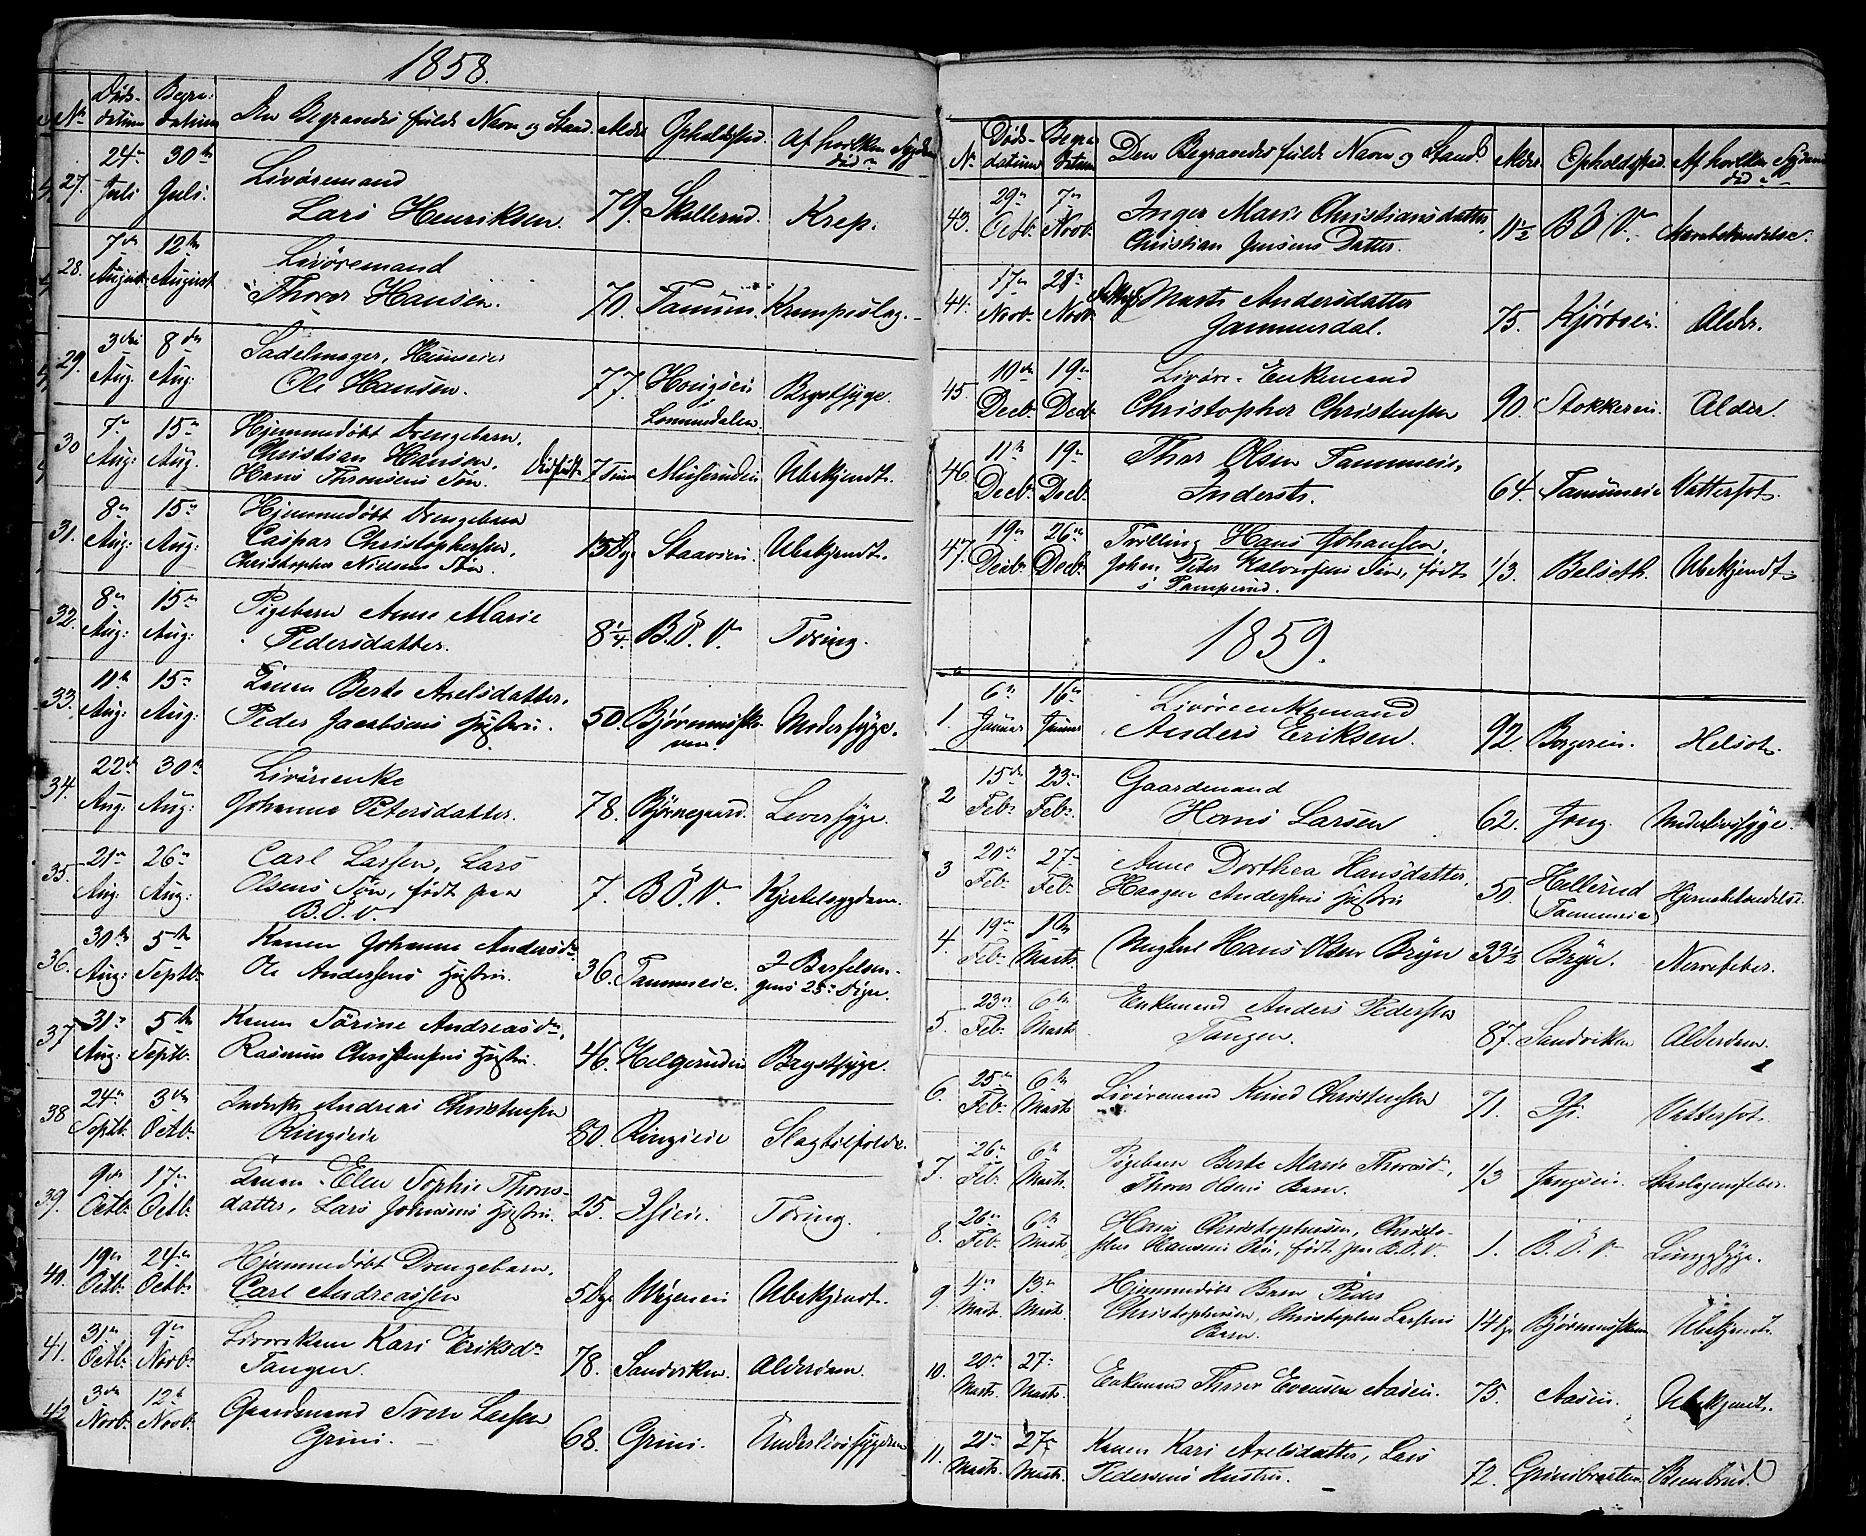 1858.
No Døds-datum Begra: datum Den Begravedes fulde Navn og Stand. Alder Opholdssted. Af hvilken Sygdom død
27. 24n Juli 30te Juli. Livøremand
Lars Henriksen. 79. Skollerud. Kræp.
28. 7de August 12te August Livøremand
Thorer Hansen. 70. Tanum. Krampeslag.
29. 3die Aug. 8de Aug: Sadelmager, Huuseier
Ole Hansen. 77. Hougseie Lommedalen. Brystsyge.
30 7n Aug: 15n Aug. Hjemmedøbt Drengebarn,
Christian Hansen,
Hans Thronsens Søn. 7 Timer Ubekjendt.
31. 8n Aug: 15n Aug: Hjemmedøbt Drengebarn
Caspar Christophersen,
Christopher Nielsens Søn. 15 Dge Staaveie. Ubekjendt.
32. 8n Aug: 15n Aug: Pigebarn Anne Marie
Pedersdatter. 8 1/4 B.Ö.V. Tæring.
33. 11te Aug: 15n Aug: Berte Axelsdatter,
Peder Jacobsens Hustru. 50. Modersyge.
34. 22de Aug: 30te Aug: Livørenke
Johanne Petersdatter. 78. Bjørnegaard. Leversyge.
35. 21n Aug. 26n Aug: Carl Larsen, Lars
Olsens Søn, født paa
B.Ö.V. 7. B.Ö.V. Kjertelsygdom.
36. 30te Aug: 5te Septb. Konen Johanne Andersdr
Ole Andersens Hustru. 36. Tanumeie. I Barselseng
37 31n Aug: 5te Septb. Konen Sörine Andreasdr,
Rasmus Christensens Hustru. 46. Helgerudeie Brystsyge.
38 24n Septb. 3de Octb. Inderste Andreas Christensen
Ringieie 80. Ringieie Slagtilfælde.
39. 9de Octb. 17n Octb. Elen Sophie Thores-
datter, Lars Johnsens Hustru. 25. Tæring.
40. 19n Octb. 24n Octb. Hjemmedøbt Drengebarn,
Carl Andreassen 5 Dge Ubekjendt.
41. 31n Octb. 9n Novb. Livørekone Kari Eriksdr
Tangen. 78. Sandviken. Alderdom.
42 3de Novb. 12te Novb. Gaardmand Iver Larsen
Grini. 68. Grini. Underlivssygdom
No Døds-datum Begra datum Den Begravedes fulde Navn og Stand. Alder. Opholdssted. Af hvilken Sygdom død
43. 29n Octb. 7n Novb. Inger Marie Christiansdatter,
Christian Jensens Datter. 11 1/2 B.Ö.V.
44. 17n Novb. 21n Novb. Marte Andersdatter
Jammerdal. 75. Kjørboeie. Alder.
45. 10de Decb. 19n Decb. Livøre-Enkemand
Christopher Christensen 90. Stokkereie. Alder.
46. 11te Decb. 19n Decb. Thor Olsen Tanumeie,
Inderste. 64. Tanumeie Vattersot.
47. 19n Decb. 26n Decb. Tvilling Hans Johansen,
Johan Peter Halvorsens Søn, født
i Tamperud. 1/3. Belseth. Ubekjendt.
1859.
1. 6te Januar 16n Januar Livøreenkemand
Anders Eriksen. 92. Borgereie. Helsot.
2 15de Feb. 23n Feb. Gaardmand
Hans Larsen 62. Jong. Underlivssyge.
3 20n Feb. 27n Feb. Anne Dorthea Hansdatter,
Haagen Andersens Hustru 50. Hellerud (Tanumeie) Hjernebetændelse.
4. 19n Feb. 1te Marts. Ungkarl Hans Olsen Bryn 33 1/2 Bryn. Nervefeber.
5. 23n Feb. 6te Marts Enkemand Anders Pedersen
Tangen. 87. Sandviken Alderdom.
6. 25n Feb. 6te Marts Livøremand Knud Christensen 71. Vattersot.
7. 26n Feb. 6te Marts. Pigebarn Berte Marie Thorsd.,
Thorer Olsens Barn. 1/3 Jongseie. Skarlagensfeber.
8. 26n Feb. 6te Marts Hans Christophersen, Christo-
pher Hansens Søn, født paa B.Ö.V. 1. B.Ö.V. Lungesyge.
9. 4n Marts. 13n Marts. Hjemmedøbt Barn Peder
Christophersen, Christopher Larsens
Barn. 14 Dge Ubekjendt.
10. 20n Marts. 27n Marts. Enkemand Thorer Evensen Aaseie. 75. Aaseie. Ubekjendt.
11. 21n Marts. 27n Marts. Konen Kari Axelsdatter, Lars
Pedersens Hustru. 72. Grinibraaten. Benbrud.